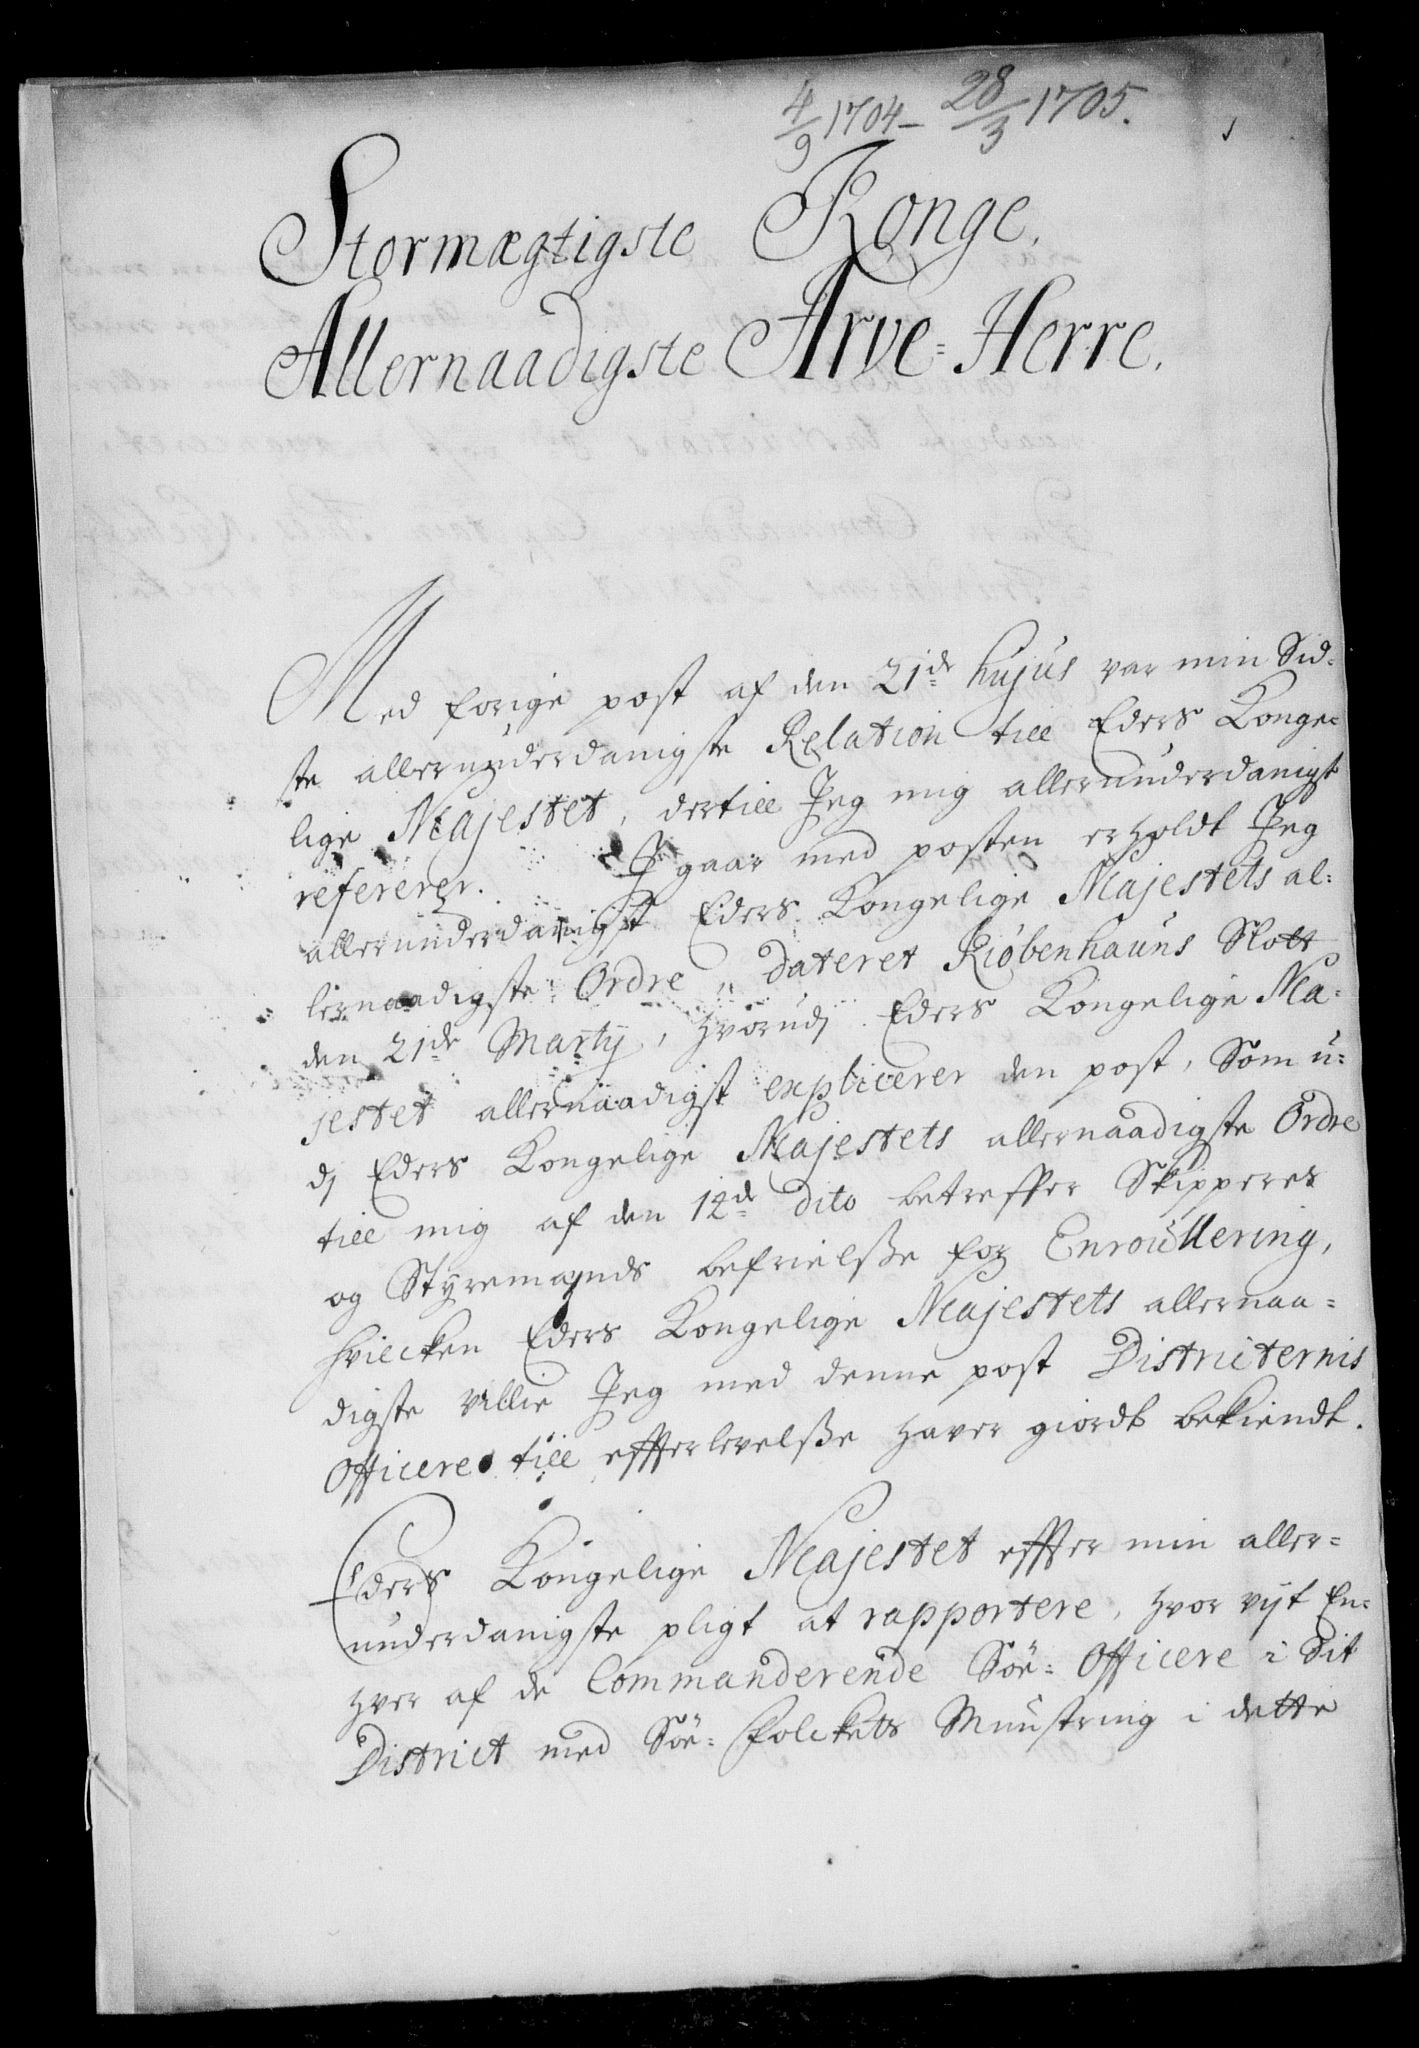 4/9 1704 – 28/3 1705.
Stormægtigste Konge,
Allernaadigste Arve-Herre.
Med forige post af den 21de hujus var min Sid-
ste allerunderdanigste Relation till Eders Konge-
lige Majestet, dertill Jeg mig allerunderdanigst
refererer. I gaar med posten erholdt Jeg
allerunderdanigst Eders Kongelige Majestets al-
lernaadigste Ordre, dateret Kiøbenhauns Slott
den 21de Martij, hvorudj Eders Kongelige Ma-
jestet allernaadigst expliceren den post, Som u-
dj Eders Kongelige Majestets allernaadigste Ordre
till mig af den 14de dito betreffer Skipperes
og Styremænds befrielsse for Enroullering,
hvilcken Eders Kongelige Majestets allernaa-
digste Villie Jeg med denne post Districternis
Officere till effterlevelsse haver giordt bekiendt.
Eders Kongelige Majestet effter min aller-
underdanigste pligt at rapportere, hvor vijt En-
hver af de Commanderende Söe-Officere i Sit
District med Söe-folckets Munstring i dette